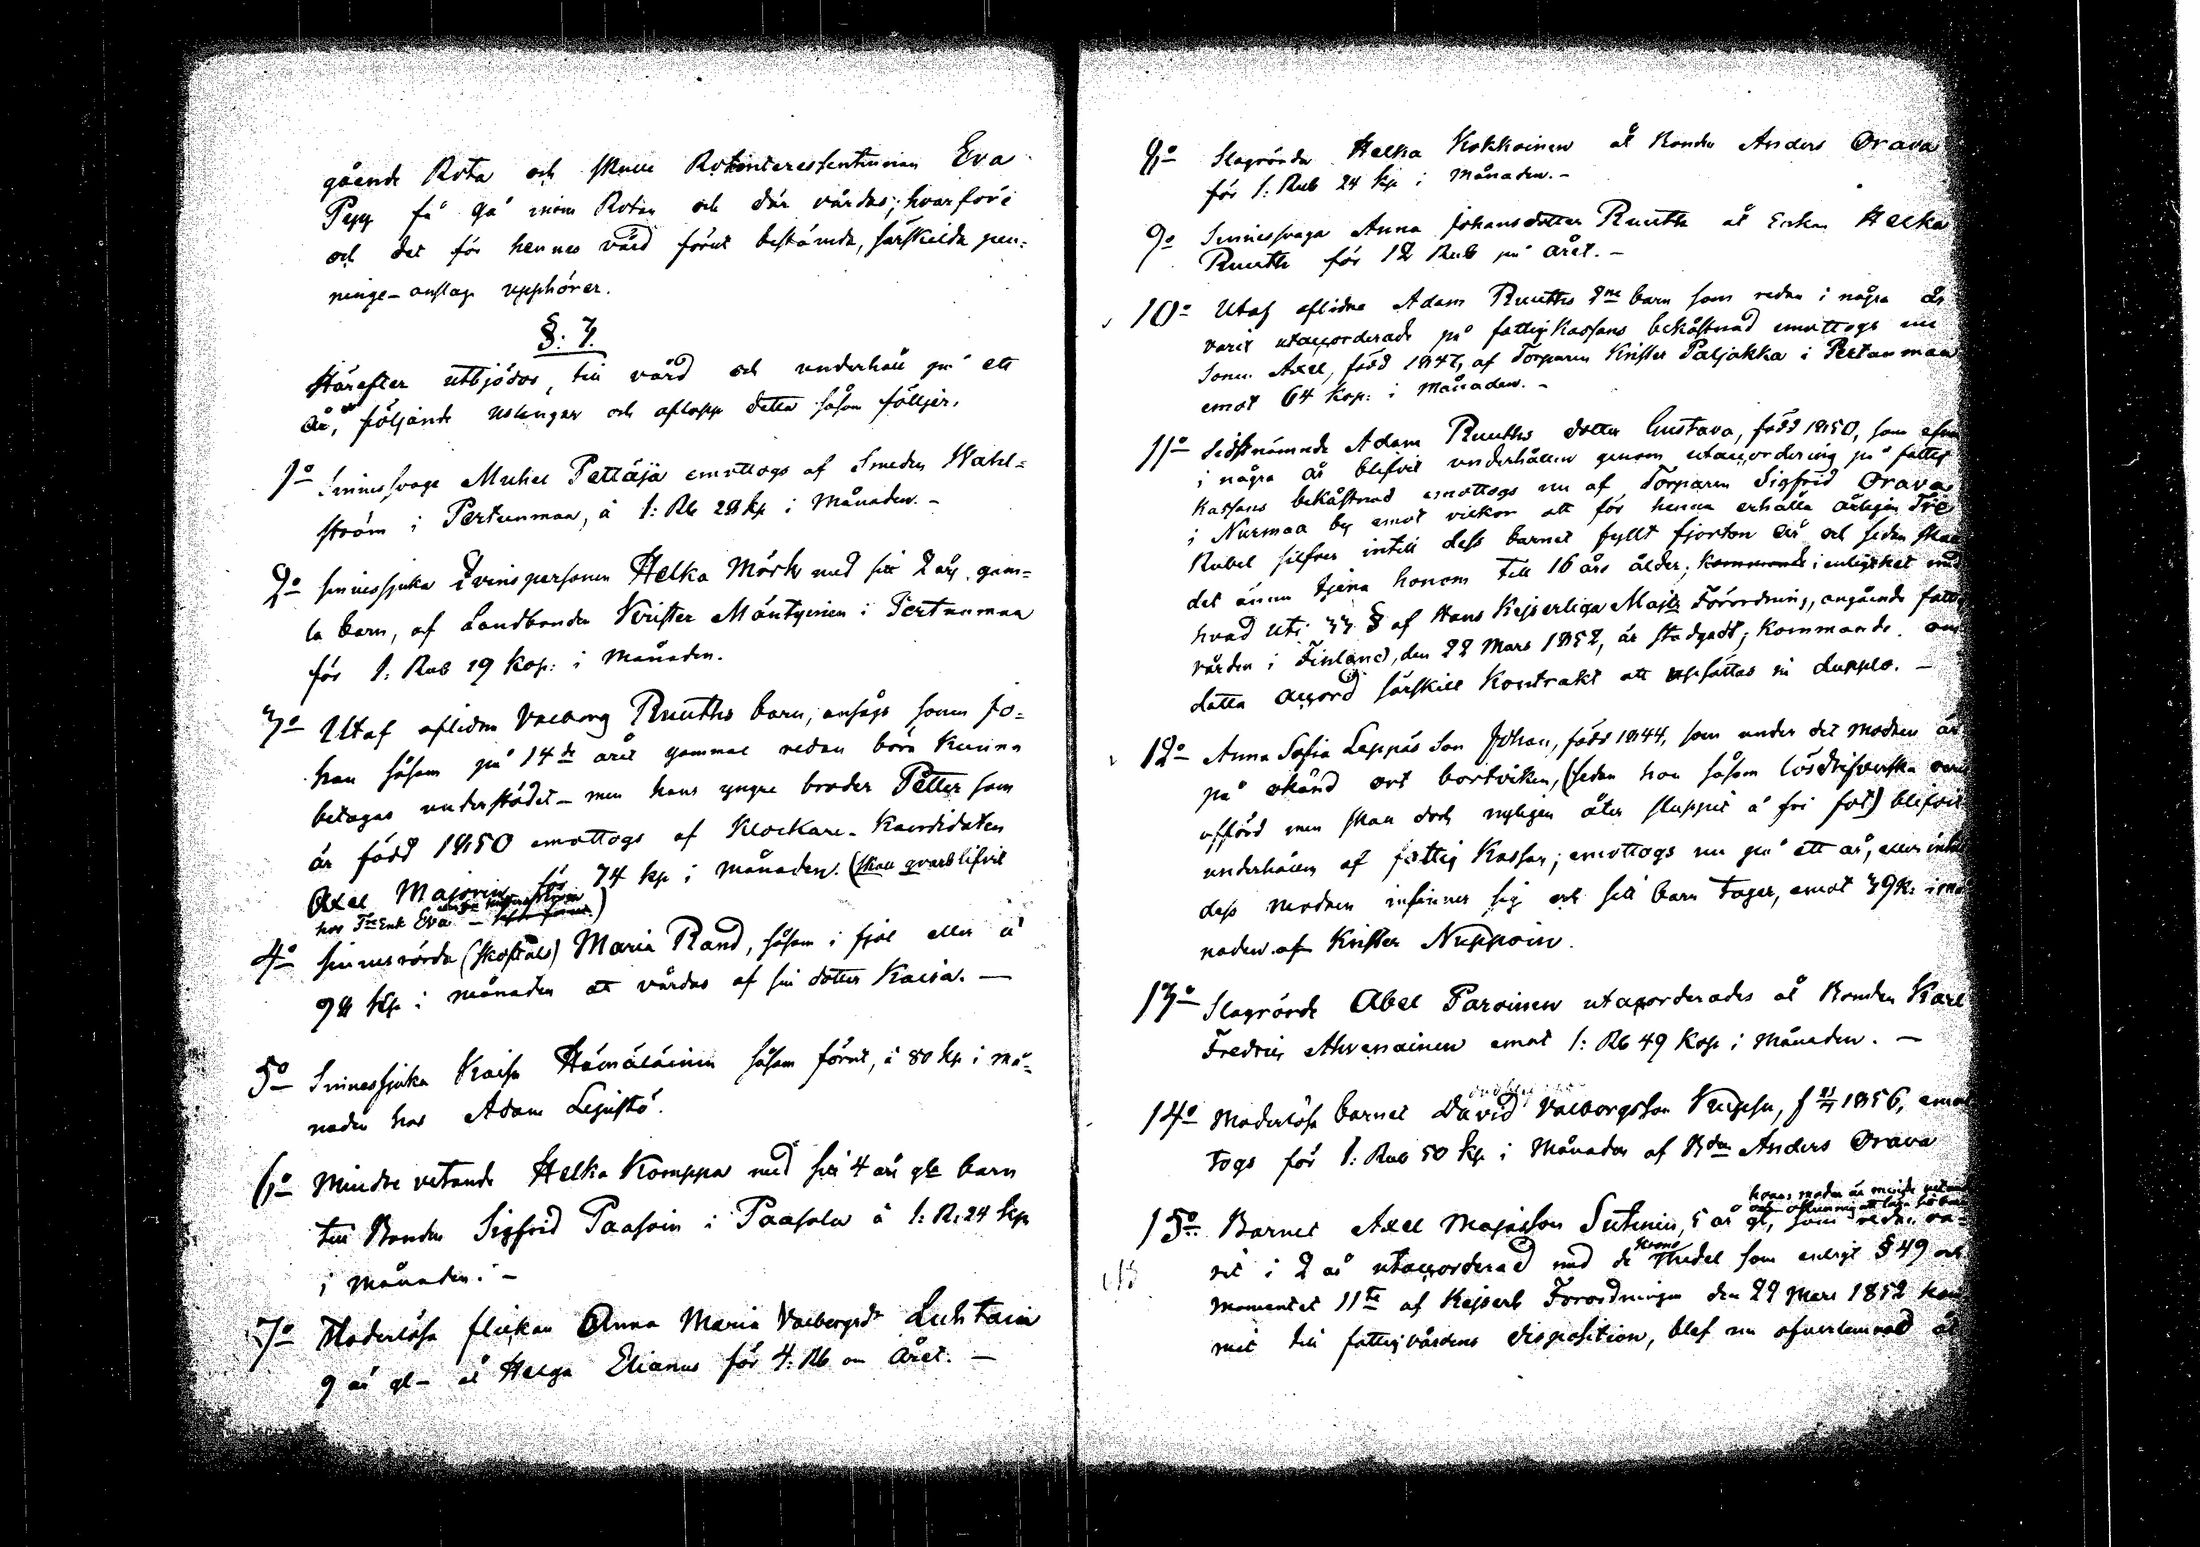 gående Rota och skulle Rotinteressentinnan Eva
Pyy få gå inom Rotan och där vårdas; hvarföre
och det för hennes vård förut bestämda, särskilda pen-
ninge-anslag upphörer.
§: 7.
Härefter utbjödos, till vård och underhåll på ett
år, följande uslingar och aflopp detta såsom följer.
1o Sinnessvage Mickel Pettäjä emottogs af Smeden Wahl-
ström i Pertunmaa, á 1: Rb 28 kp i månaden. -
2o sinnessjuka qvinspersonen Helka Mörk med sitt 2 års gam-
la barn, af Landbonden Krister Mäntyinen i Pertunmaa
för 1. Rub 19 kop: i månaden.
3o Utaf aflidna Valborg Ruuths barn, ansågs sonen Jo-
han såsom på 14de året gammal redan böra kunna
betagas understödet - men hans yngre broder Petter som
är född 1850 emottogs af Klockare-Kandidaten
Axel Majorin för 74 kp i månaden. (skall qvarblifvit
hos Enk Eva)
4o sinnesrörda (Skostäls) Maria Rand, såsom i fjol eller á
98 kp i månaden att vårdas af sin dotter Kaisa. -
5o Sinnessjuka Kaisa Hämäläinen såsom förut, á 80 kp i må-
naden hos Adam Lejistö.
6o Mindre vetande Helka Komppa med sitt 4 års gla barn
till Bonden Sigfrid Paasoin i Paasola á 1: R: 24 kp
i månaden. -
7o Moderlösa flickan Anna Maria Valborgsdr Luhtain
9 år gl - åt Helga Elianus för 4: Rb om året. -
8o Slagrörda Helka Kokkoinen åt Bonden Anders Orava
för 1: Rub 24 kp i månaden. -
9o Sinnessvaga Anna Johansdotter Ruuth åt Enkan Helka
Ruuth för 12 Rub på året. -
10o Utaf aflidne Adam Ruuths 2ne barn som redan i några år
varit utackorderade på fattigkassans bekåstnad emottogs nu
sonen Axel, född 1847, af Torparen Krister Paljakka i Pertunmaa
emot 64 kop: i månaden. -
11o Sidstnämnde Adam Ruuths dotter Gustava, född 1850, som
i några år blifvit underhållen genom utackordering på fattig
Kassans bekåstnad emottogs nu af Torparen Sigfrid Orava
i Nurmaa by emot vilkor att för henne erhålla årligen Tre
Rubel silfver intill dess barnet fyllt fjorton år och sedan skall
det ännu tjena honom till 16 års ålder; i enlighet med
hvad uti 33 § af Hans Kejserliga Majts Förordning, angående fattig
vården i Finland, den 22 Mars 1852, är stadgadt; kommande om
detta ackord särskilt Kontrakt att uppsättas in dupplo. -
12o Anna Sofia Leppäs son Johan, född 1844, som under det modren är
på okänd ort bortviken, (sedan hon såsom lösdrifverska varit
afförd men skall dock nyligen åter sluppit á fri fot) blifvit
underhållen af fattig Kassan; emottogs nu på ett år, eller intill
dess modren infinner sig och sitt barn tager, emot 39 k: i må
naden af Krister Nuppoin.
13o Slagrörde Abel Paroinen utackorderades åt Bonden Karl
Fredric Ahvenainen emot 1: Rb 49 kop i månaden. -
14o Moderlösa barnet David Valborgsson Kupsu, f 1856, emot
togs för 1: Rub 50 kp i månaden af Bden Anders Orava
hvars moder är mindre vetande
15o Barnet Axel Majasson Sutinen, 5 år gl, som redan va-
rit i 2 år utackorderad med de Krono Medel som enligt § 49 och
momentet 11te af Kejserl Förordningen den 22 Mars 1852 kom
mit till fattigvårdens disposition, blef nu öfverlemnad åt